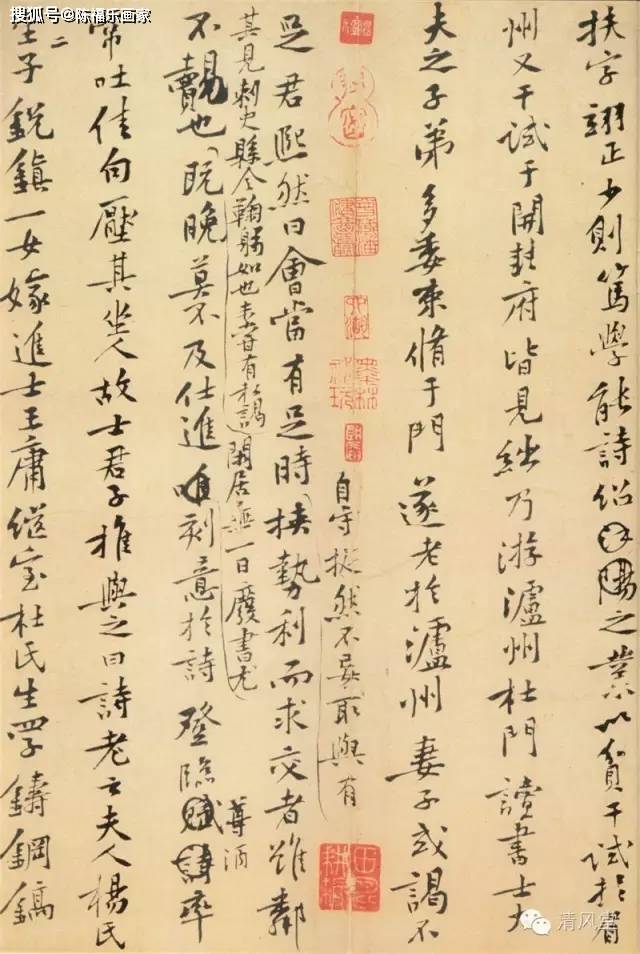 搜狐号@陈福乐画家
扶字翊正少則篤學能詩紹陽之業以貧干試於眉
州又干試于開封府皆見絀乃游瀘州杜門讀書士大
夫之子弟多委束脩于門遂老於瀘州妻子或謁不
自守挺然不妄取與有
足君熙然曰會當有足時挾勢利而求交者雖鄰
其見刺史縣令鞠躬如也未嘗有私謁閑居無一日廢書尤
尊酒
不覿也既晚莫不及仕進唯刻意於詩登臨賦詩率
常吐佳句壓其坐人故士君子推與之曰詩老云夫人楊氏
生二子銳鎮一女嫁進士王庸繼室杜氏生四子鑄鋼鎬
清风堂